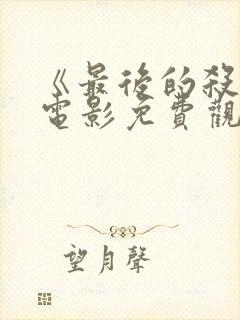 《最後的殺
電影免費觀
望月聲